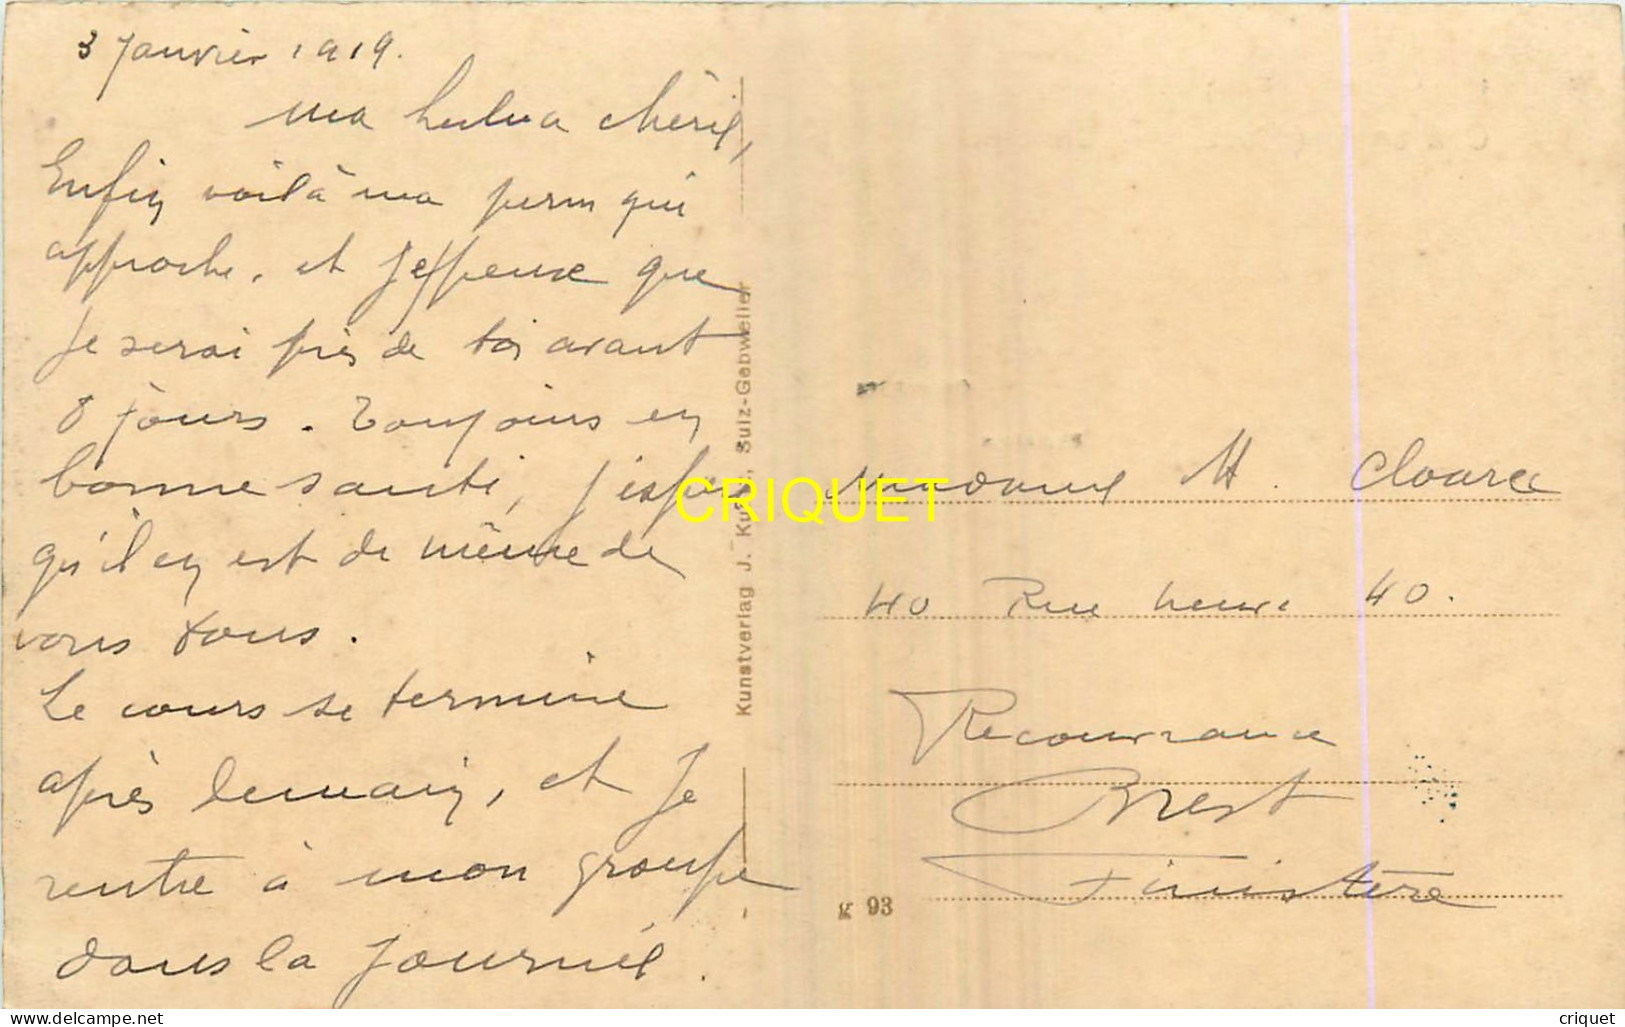 3 Janvier 1919.
ma chérie,
Enfin voilà ma perm qui
approche. et je pense que
je serai près de toi avant
8 jours. Toujours en
bonne santé, j'espère
qu'il en est de même de
vous tous.
Le cours se termine
après demain, et je
rentre à mon groupe
dans la journée.
Kunstverlag J. Sulz-Gebweiler
CRIQUET
Madame H. Cloarec
40 Rue 40.
Recouvrance
Brest
Finistère
K 93
www.delcampe.net
criquet